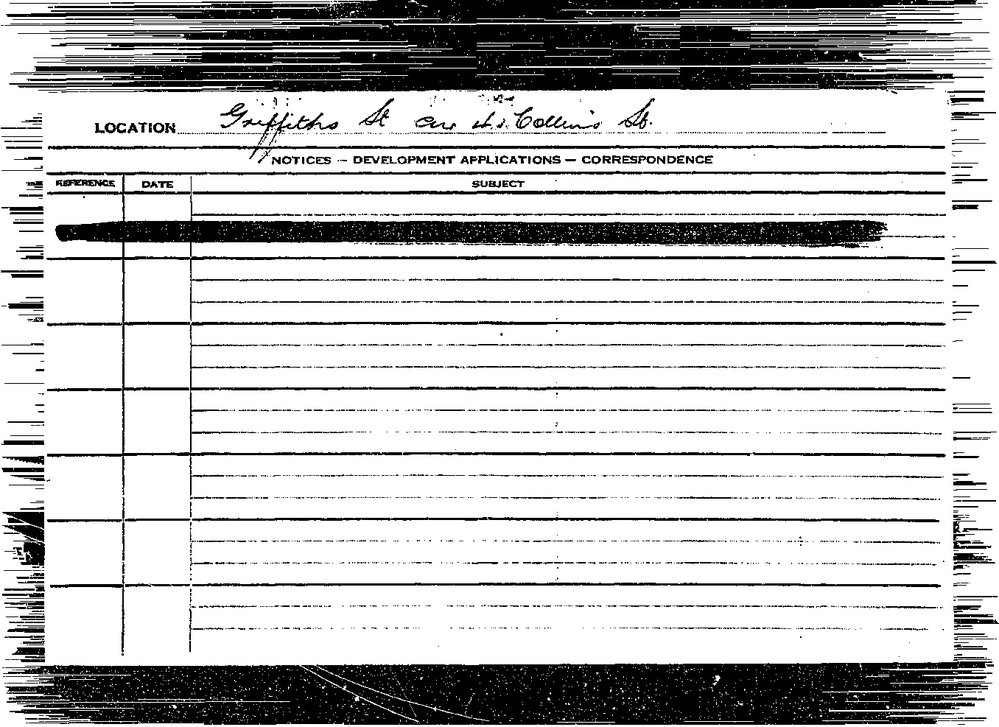 LOCATION Griffiths St Cnr Collins St.
NOTICES — DEVELOPMENT APPLICATIONS — CORRESPONDENCE
REFERENCE DATE SUBJECT